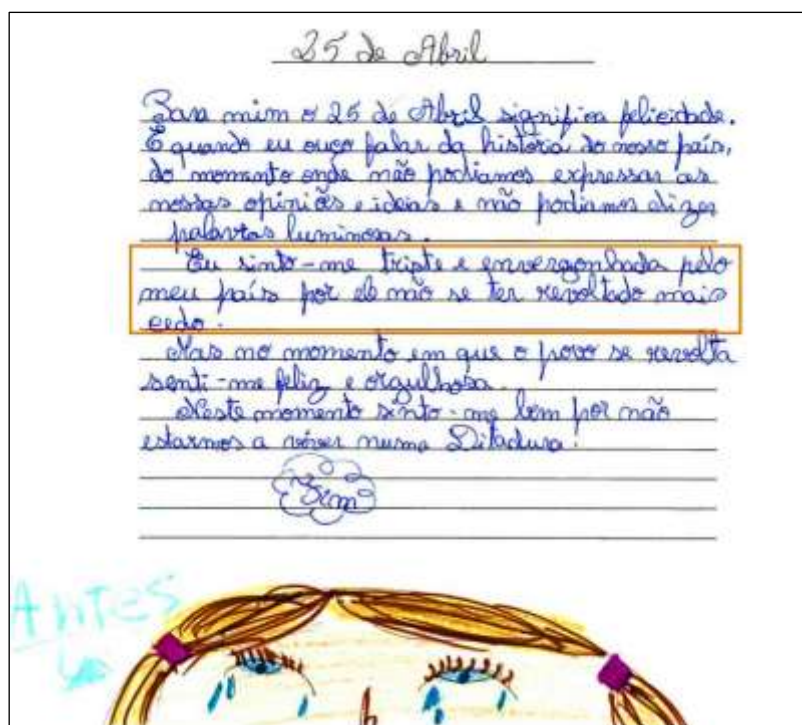 25 de Abril
Para mim o 25 de Abril significa felicidade.
E quando eu ouço falar da história do nosso país,
do momento onde não podiamos expressar as
nossas opiniões e ideias e não podiamos dizer
palavras luminosas.
Eu sinto-me triste e envergonhada pelo
meu país por ele não se ter revoltado mais
cedo.
Mas no momento em que o povo se revolta
senti-me feliz e orgulhosa.
Neste momento sinto-me bem por não
estarmos a viver numa Ditadura!
Fim
Antes